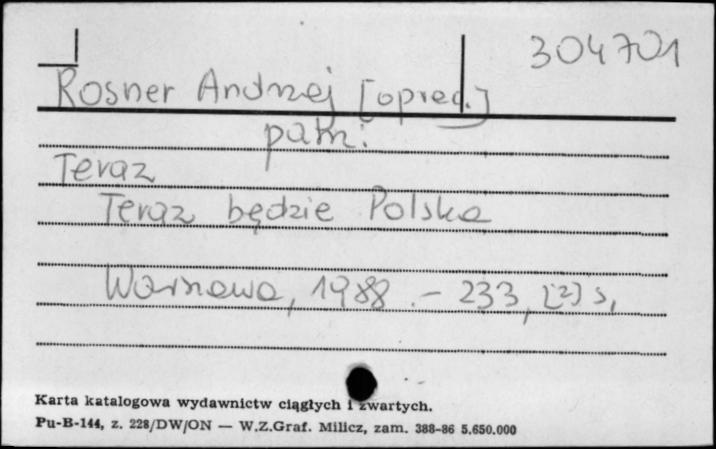 304701
Rosner Andrzej [opred.]
patrz:
Teraz
Teraz będzie Polska
Warszawa, 1988. – 233, [2] s.
Karta katalogowa wydawnictw ciągłych i zwartych.
Pu-B-144, z. 228/DW/ON — W.Z.Graf. Milicz, zam. 388-86 5.650.000